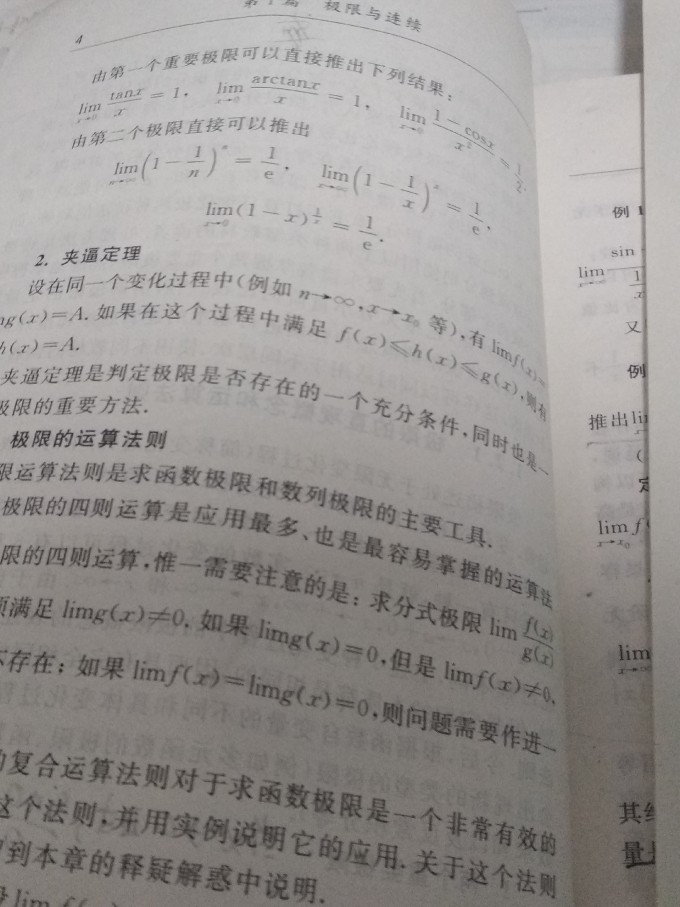 极限与连续
4
由第一个重要极限可以直接推出下列结果：
lim x→0 tanx/x = 1， lim x→0 arctanx/x = 1， lim x→0 (1－cosx)/x² = 1/2
由第二个极限直接可以推出
lim n→∞ (1－1/n)ⁿ = 1/e， lim x→∞ (1－1/x)ˣ = 1/e，
lim x→0 (1－x)^(1/x) = 1/e．
2. 夹逼定理
设在同一个变化过程中(例如 n→∞, x→x₀ 等)，有 limf(x)=
g(x)=A. 如果在这个过程中满足 f(x)≤h(x)≤g(x)，则有
h(x)=A.
夹逼定理是判定极限是否存在的一个充分条件，同时也是一
极限的重要方法．
极限的运算法则
限运算法则是求函数极限和数列极限的主要工具．
极限的四则运算是应用最多、也是最容易掌握的运算法
限的四则运算，惟一需要注意的是：求分式极限 lim f(x)/g(x)
须满足 limg(x)≠0. 如果 limg(x)=0，但是 limf(x)≠0，
不存在；如果 limf(x)=limg(x)=0，则问题需要作进一
的复合运算法则对于求函数极限是一个非常有效的
这个法则，并用实例说明它的应用．关于这个法则
到本章的释疑解惑中说明．
lim f(
例 1
lim x→∞ sin 1/x
又
例
推出 li
(
定
lim x→x₀ f
lim x→∞
其
量